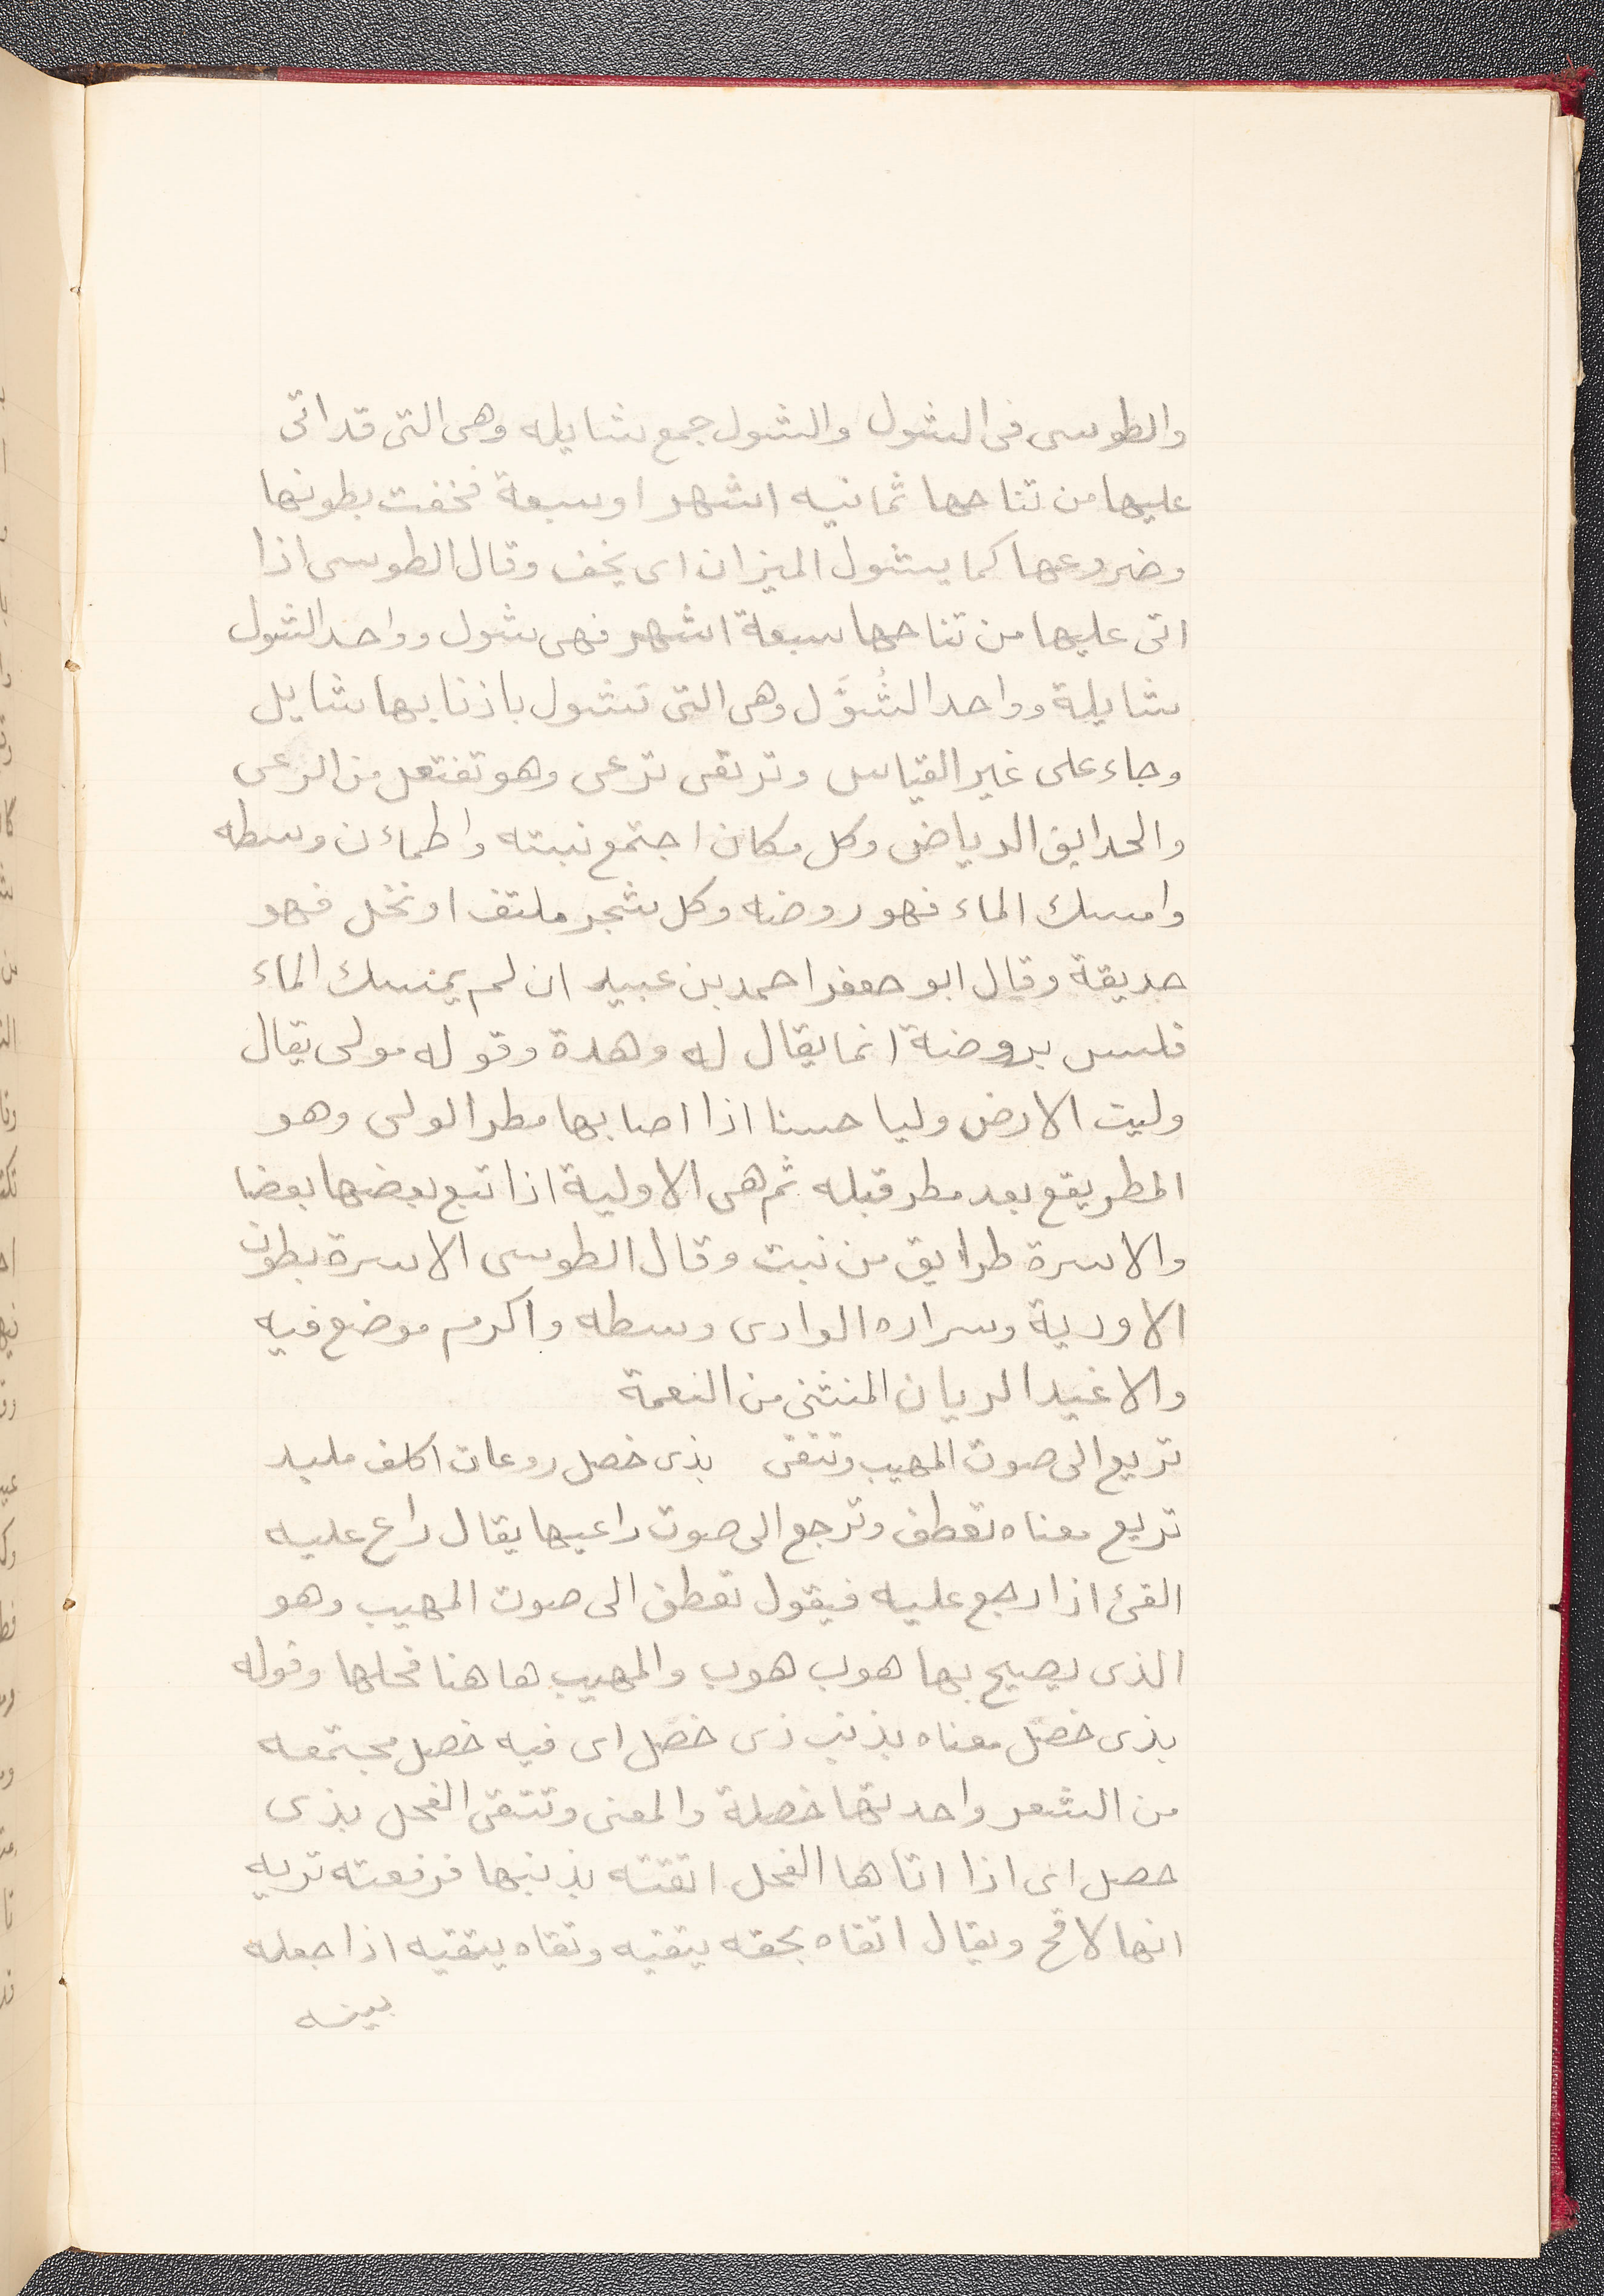 والطوسى فى الشول والشول جمع شايله وهى التى قد اتى
عليها من نتاجها ثمانيه اشهر او سبعة فخفت بطونها
وضروعها كما يشول الميزان اى يخف وقال الطوسى اذا
اتى عليها من نتاحها سبعة اشهر فهى شول وواحد الشول
شايلة وواحد الشُوَّل وهى التى تشول باذنابها شايل
وجاء على غير القياس وترتقى ترعى وهو تفتعل من الرعى
والحدايق الرياض وكل مكان اجتمع نبته واطماءن وسطه
وامسك الماء فهو روضه وكل شجر ملتف او نخل فهو
حديقة وقال ابو جعفر احمد بن عبيد ان لم يمسك الماء
فليس بروضة انما يقال له وهدة وقوله مولى يقال
وليت الارض وليا حسنا اذا اصابها مطر الولى وهو
المطر يقع بعد مطر قبله ثم هى الاولية اذا تبع بعضها بعضا
والاسرة طرايق من نبت وقال الطوسى الاسرة بطون
الاودية وسراره الوادى وسطه واكرم موضع فيه
والاغيد الريان المنثنى من النعمة
تريع الى صوت المهيب وتتقى بذى خصل روعات اكلف ملبد
تريع معناه تعطف وترجع الى صوت راعيها يقال راع عليه
القئ اذا رجع عليه فيقول تعطف الى صوت المهيب وهو
الذى يصيح بها هوب هوب والمهيب هاهنا فحلها وقوله
بذى خصل معناه بذنب ذى خصل اى فيه خصل مجتمعه
من الشعر واحدتها خصلة والمعنى وتتقى الفحل بذى
خصل اى اذا اتاها الفحل اتقته بذنبها فرفعته تريه
انها لاقح ويقال اتقاه بحقه يتقيه وتقاه يتقيه اذا جعله
بينه